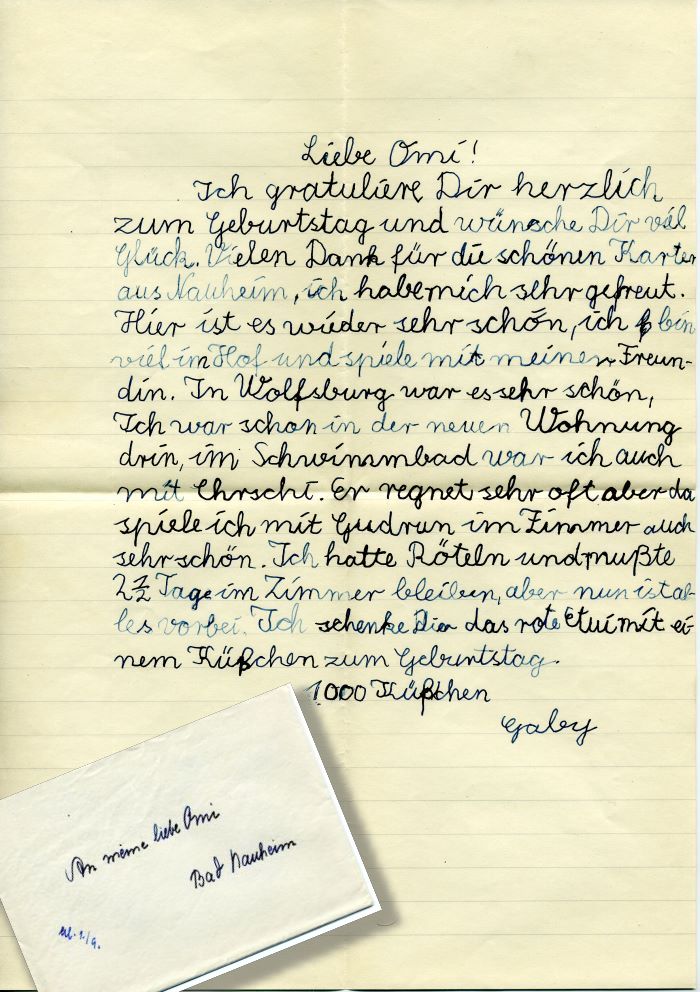 Liebe Omi!
Ich gratuliere Dir herzlich
zum Geburtstag und wünsche Dir viel
Glück. Vielen Dank für die schönen Karten
aus Nauheim, ich habe mich sehr gefreut.
Hier ist es wieder sehr schön, ich bin
viel im Hof und spiele mit meiner Freun-
din. In Wolfsburg war es sehr schön,
Ich war schon in der neuen Wohnung
drin, im Schwimmbad war ich auch
mit Uhrschi. Er regnet sehr oft aber da
spiele ich mit Gudrun im Zimmer auch
sehr schön. Ich hatte Röteln und mußte
2 1/2 Tage im Zimmer bleiben, aber nun ist al-
les vorbei. Ich schenke Dir das rote Etui mit ei-
nem Küßchen zum Geburtstag.
1000 Küßchen
Gaby
An meine liebe Omi
Bad Nauheim